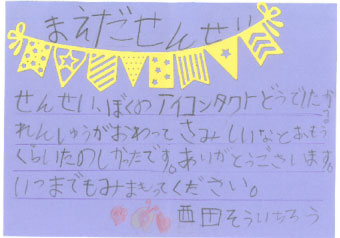 まえだせんせい
せんせい、ぼくのアイコンタクトどうでしたか。
れんしゅうがおわってさみしいなとおもう
くらいたのしかったです。ありがとうございます。
いつまでもみまもってください。
西田そういちろう